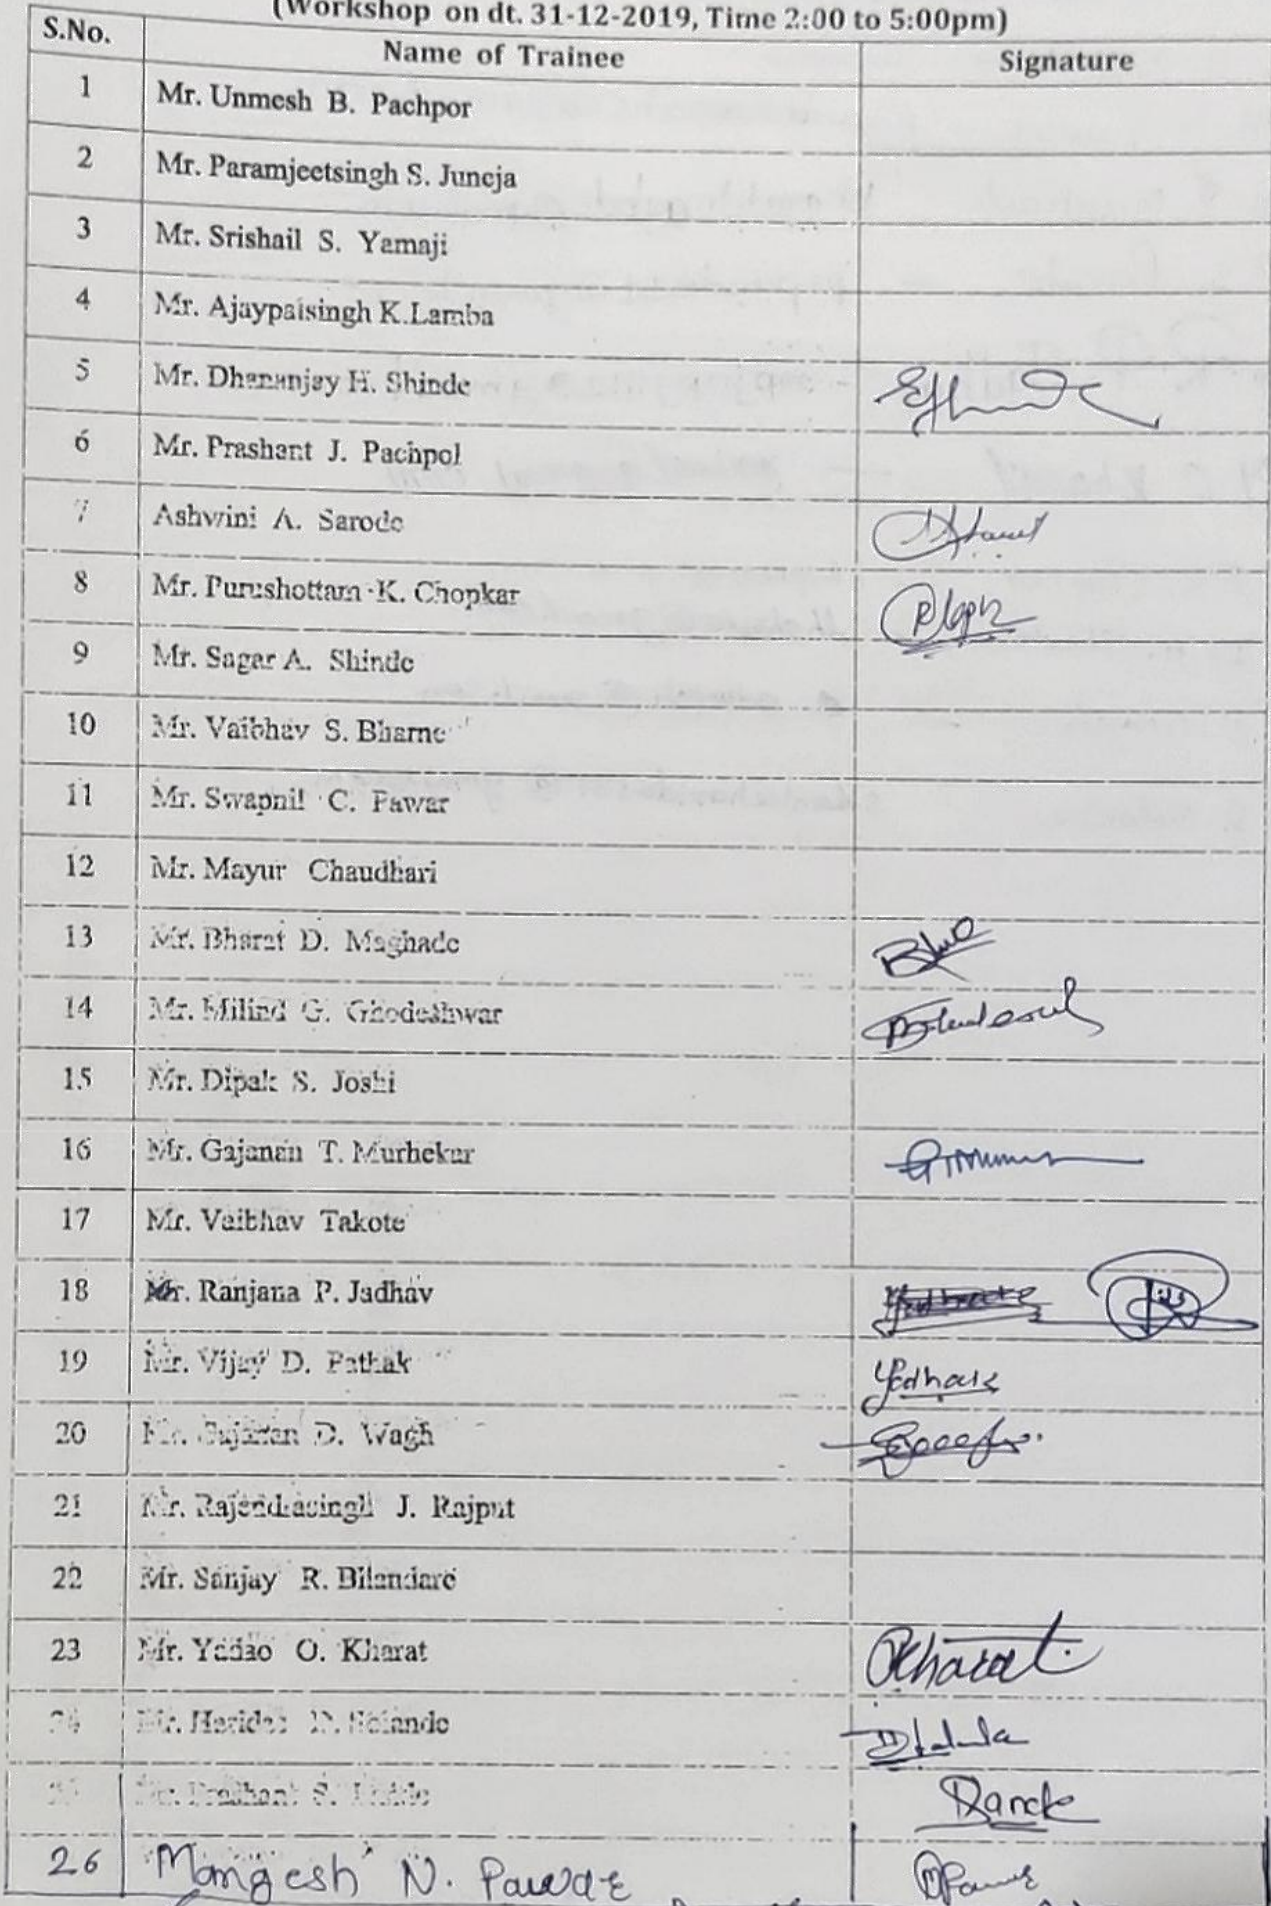 (Workshop on dt. 31-12-2019, Time 2:00 to 5:00pm)
S.No. Name of Trainee Signature
1 Mr. Unmesh B. Pachpor
2 Mr. Paramjeetsingh S. Juneja
3 Mr. Srishail S. Yamaji
4 Mr. Ajaypalsingh K.Lamba
5 Mr. Dhananjay H. Shinde
6 Mr. Prashant J. Pachpol
7 Ashwini A. Sarode
8 Mr. Purushottam K. Chopkar
9 Mr. Sagar A. Shinde
10 Mr. Vaibhav S. Bharne
11 Mr. Swapnil C. Pawar
12 Mr. Mayur Chaudhari
13 Mr. Bharat D. Maghade
14 Mr. Milind G. Ghodeshwar
15 Mr. Dipak S. Joshi
16 Mr. Gajanan T. Murhekar
17 Mr. Vaibhav Takote
18 Mr. Ranjana P. Jadhav
19 Mr. Vijay D. Pathak
20 Mr. Gajanan D. Wagh
21 Mr. Rajendrasingh J. Rajput
22 Mr. Sanjay R. Bilandare
23 Mr. Yadao O. Kharat Kharat
24 Mr. Haridas
Mr. Prashant S.
26 Mangesh N. Pawar